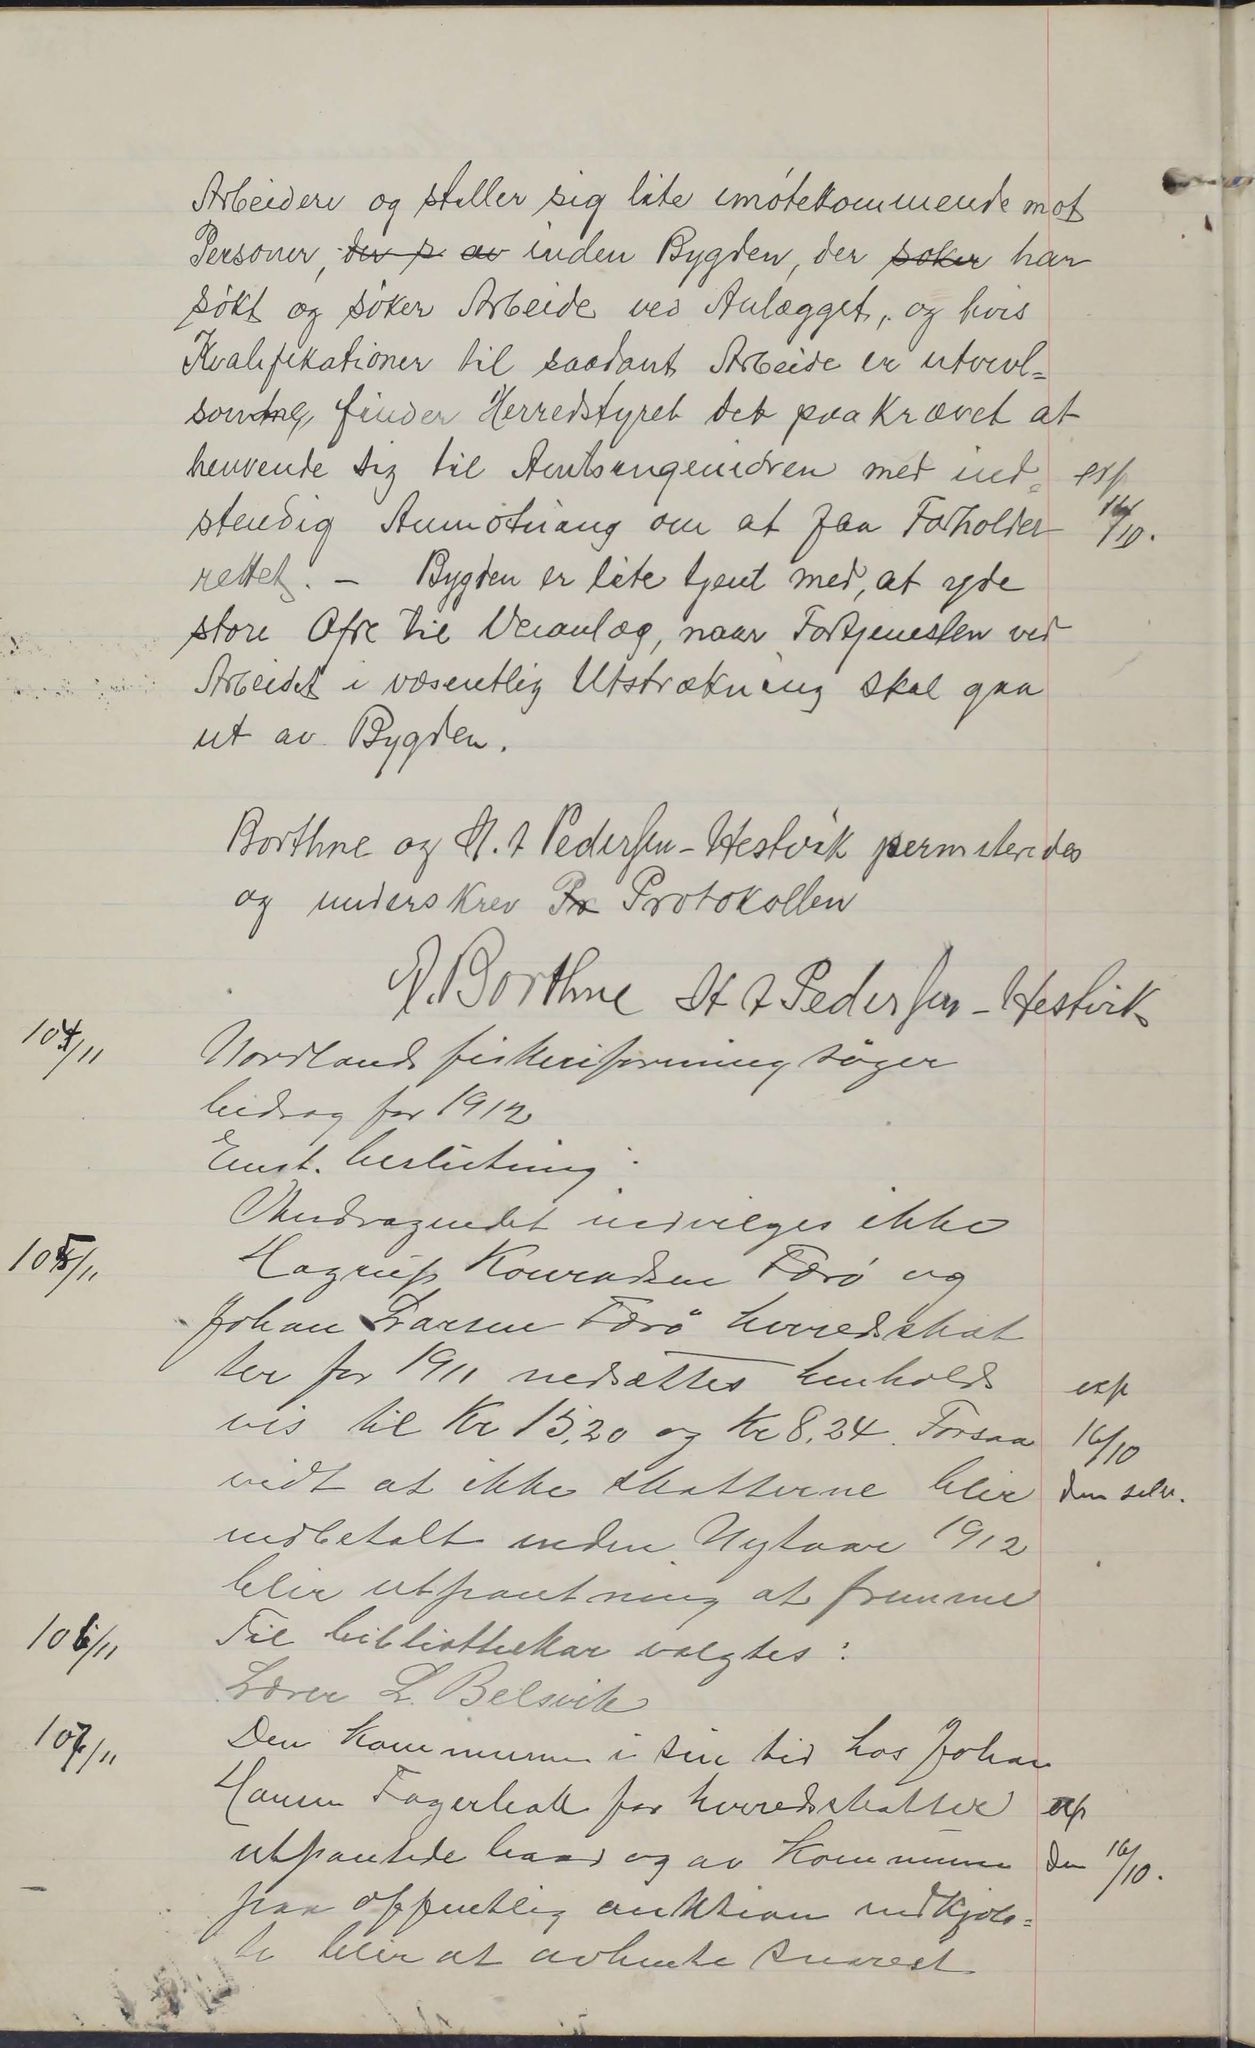 Arbeidere og stiller sig lite imøtekommende mot
Personer, der s. av inden Bygden, der søker har
søkt og søker Arbeide ved Anlægget, og hvis
Kvalifikationer til saadant Arbeide er utvivl-
somme, finder Herredstyret det paakrævet at
henvende sig til Amtsingeniøren med ind- exp
stendig Anmodning om at faa Forholdet 16/10.
rettet. - Bygden er lite tjent med, at yde
store Ofre til Veianlæg, naar Fortjenesten ved
Arbeidet i væsentlig Utstrækning skal gaa
ut av Bygden.
Borthne og H. A Pedersen-Hestvik permiteredes
og underskrev Pr Protokollen
A. Borthne H A Pedersen-Hestvik
104/11 Nordlands fiskeriforening søger
bidrag for 1912
Enst. beslutning:
Andragendet indvilges ikke
105/11 Hagrup Konradsen Færø og
Johan Larsen Færø herredskat
ter for 1911 nedsættes henholds exp
vis til Kr 15,20 og Kr 8,24. Forsaa 16/10
vidt at ikke skatterne blir den selv.
indbetalt inden Nytaar 1912
blir utpantning at fremme
106/11 Til bibliothekar valgtes:
Lærer L. Belsvik
107/11 Den Kommunen i sin tid hos Johan
Hansen Fagerbakk for herredskatter exp
utpantede baad og av Kommunen den 16/10.
paa offentlig auktion indkjøb-
te blir at avhente snarest